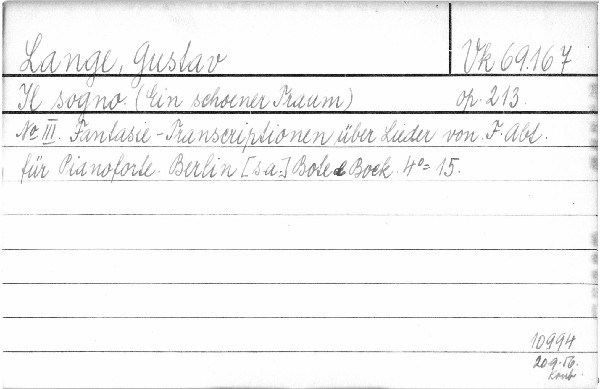 Lange, Gustav
Vk 69.167
Il sogno. (Ein schoener Traum) op. 213.
No III. Fantasie-Transcriptionen über Lieder von F. Abt.
für Pianoforte. Berlin [s a.] Bote & Bock. 4° = 15.
10994
20.9.56.